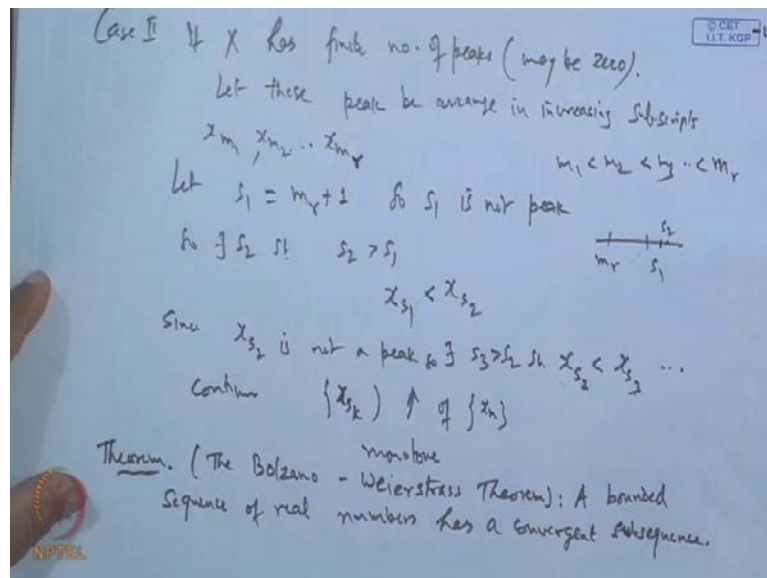 Case II If X has finite no. of peaks (may be zero).
© CET
I.I.T. KGP
Let these peak be arrange in increasing Subscripts
x_{m_1}, x_{m_2} .. x_{m_r}
m_1 < m_2 < m_3 .. < m_r
Let s_1 = m_r + 1 So s_1 is not peak
So ∃ s_2 st s_2 > s_1
m_r s_1 s_2
x_{s_1} < x_{s_2}
Since x_{s_2} is not a peak so ∃ s_3 > s_2 st. x_{s_2} < x_{s_3} ...
Continue {x_{s_k}) ↑ of {x_n}
monotone
Theorem. (The Bolzano - Weierstrass Theorem): A bounded
Sequence of real numbers has a convergent subsequence.
NPTEL